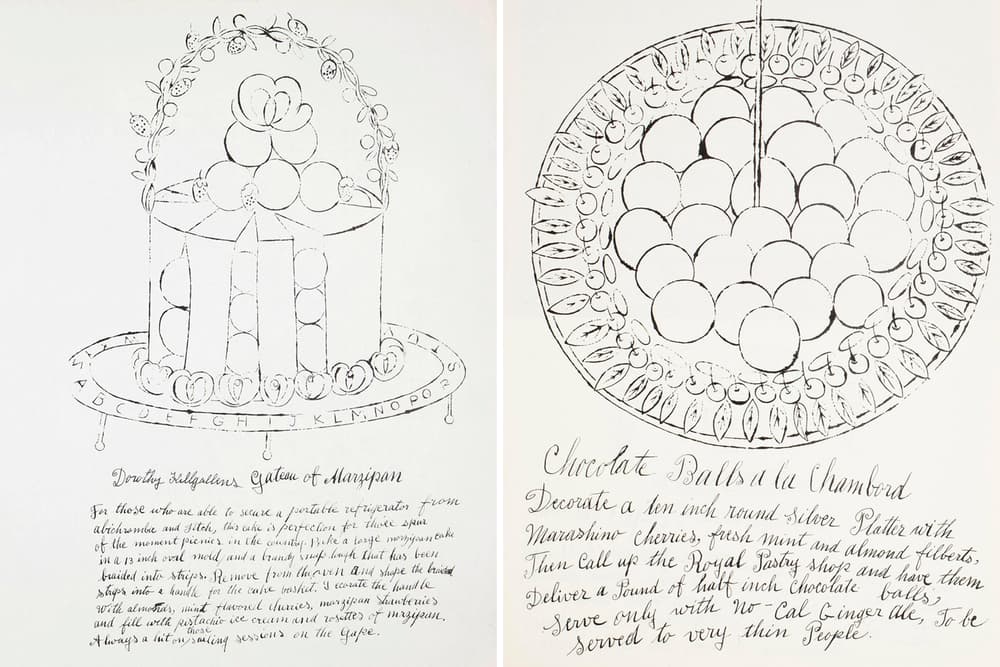 A B C D E F G H I J K L M N O P Q R S T
Dorothy Killgallens Gateau of Marzipan
For those who are able to secure a portable refrigerator from
abichrombie and fitch, this cake is perfection for those spur
of the moment picnics in the country. Bake a large marzipan cake
in a 13 inch oval mold, and a brandy snap dough that has been
braided into strips. Remove from the oven and shape the braided
strips into a handle for the cake basket. Decorate the handle
with almonds, mint flavored cherries, marzipan strawberries
and fill with pistachio ice cream and rosettes of mrzipan.
Always a hit on those sailing sessions on the Gape.
Chocolate Balls a la Chambord
Decorate a ten inch round silver Platter with
Marashino cherries, fresh mint and almond filberts,
Then Call up the Royal Pastry shop and have them
Deliver a Pound of half inch Chocolate balls,
Serve only with no-Cal Ginger Ale, To be
Served to very thin People.